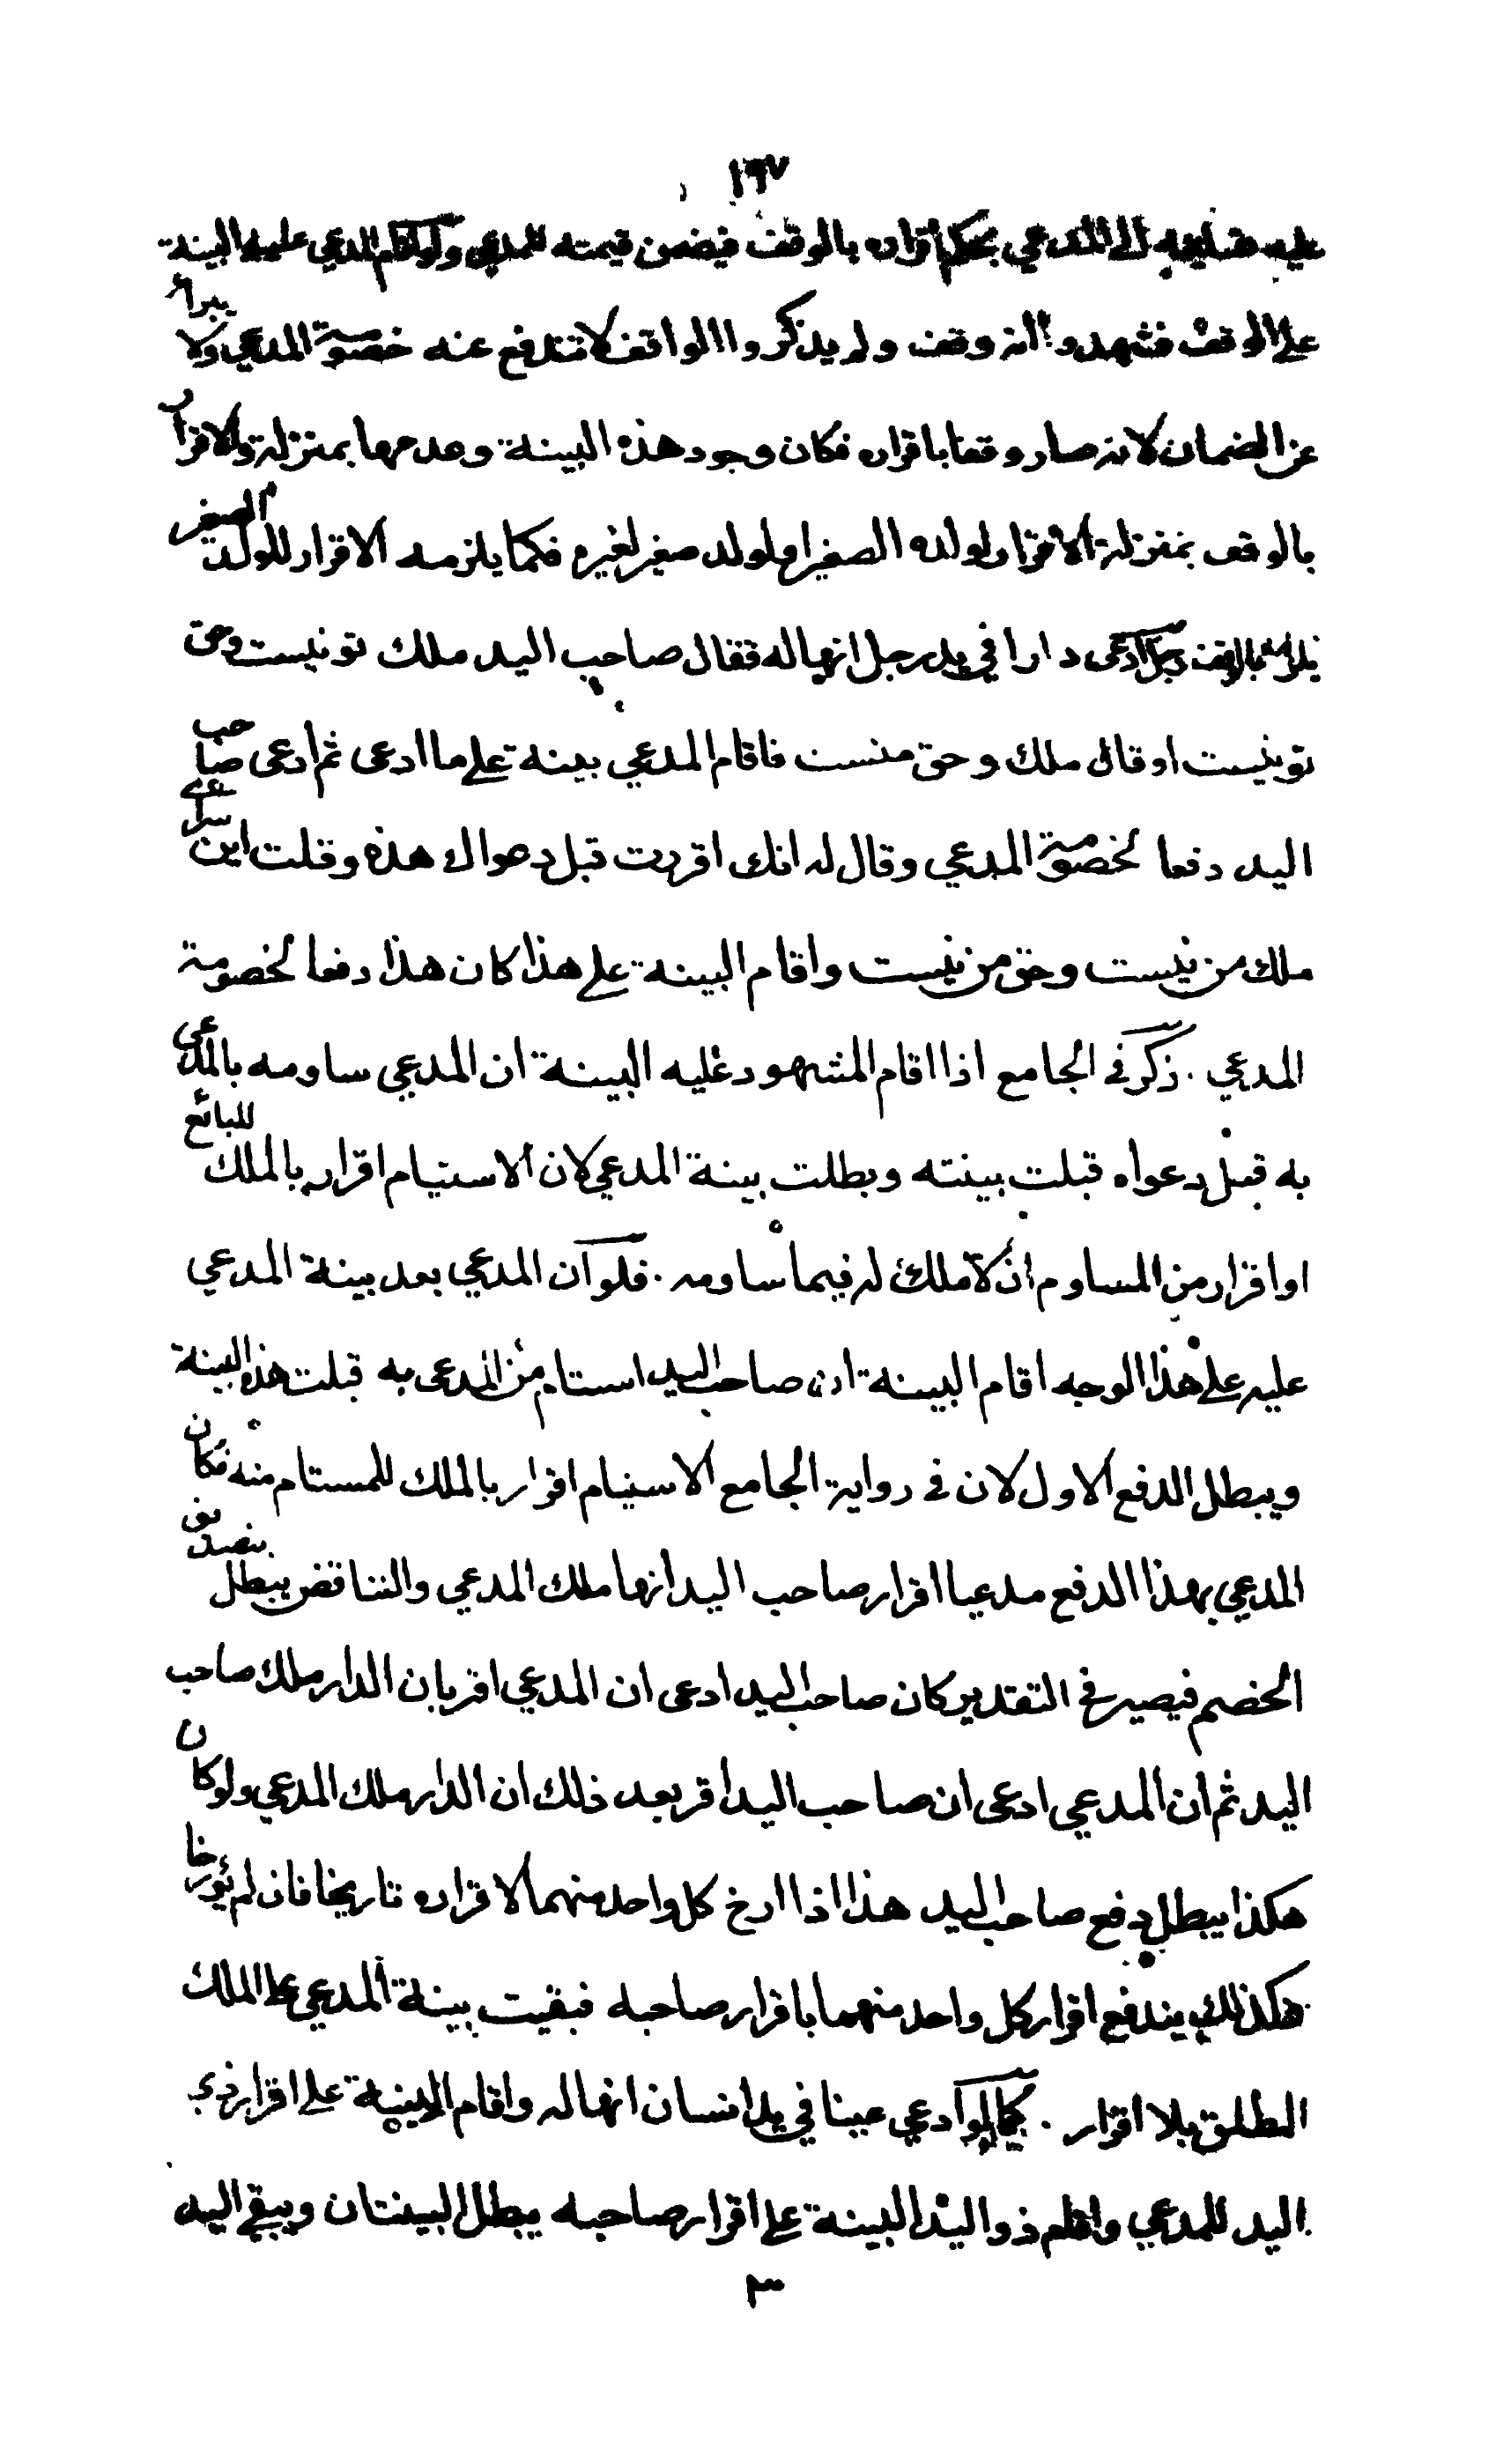 ١٦٧
عليه تسليمه الى المدعي بحكم اقراره بالوقف فيضمن قيمته للمدعي ولو اقام المدعي عليه البينة
على الوقف فشهدوا انه وقف ولم يذكروا الواقف لا تندفع عنه خصومة المدعي ولا يبرأ
عن الضمان لانه صار وقفا باقراره فكان وجود هذه البينة وعدمها بمنزلة والاقرار
بالوقف بمنزلة الاقرار لولده الصغير او لولد صغير لغيره فكما يلزمه الاقرار للولد الصغير
يلزمه بالوقف رجل ادعى دارا في يد رجل انها له فقال صاحب اليد ملك تو نيست وحق
تو نيست او قال ملك وحق منست فاقام المدعي بينة على ما ادعى ثم ادعى صاحب
اليد دفعا لخصومة المدعي وقال له انك اقررت قبل دعواك هذه وقلت اين سراى
ملك من نيست وحق من نيست واقام البينة على هذا كان هذا دفعا لخصومة
المدعي . ذكر في الجامع اذا اقام المشهود عليه البينة ان المدعي ساومه بالمدعى
به قبل دعواه قبلت بينته وبطلت بينة المدعي لان الاستيام اقرار بالملك للبائع
او اقرار من المساوم ان لا ملك له فيما ساومه . فلو ان المدعي بعد بينة المدعي
عليه على هذا الوجه اقام البينة ان صاحب اليد استام من المدعى به قبلت هذه البينة
ويبطل الدفع الاول لان في رواية الجامع الاستيام اقرار بالملك للمستام منه فكان
المدعي بهذا الدفع مدعيا اقرار صاحب اليد انها ملك المدعي والتناقض يبطل بتصديق
الخصم فيصير في التقدير كان صاحب اليد ادعى ان المدعي اقر بان الدار ملك صاحب
اليد ثم ان المدعي ادعى ان صاحب اليد اقر بعد ذلك ان الدار ملك المدعي ولو كان
هكذا يبطل دفع صاحب اليد هذا اذا ارخ كل واحد منهما لاقراره تاريخا فان لم يؤرخا
فكذلك يندفع اقرار كل واحد منهما باقرار صاحبه فبقيت بينة المدعي على الملك
المطلق بلا اقرار . كما لو ادعي عينا في يد انسان انها له واقام البينة على اقرار ذي
اليد للمدعي واقام ذو اليد البينة على اقرار صاحبه يبطل البينتان ويبقي اليد